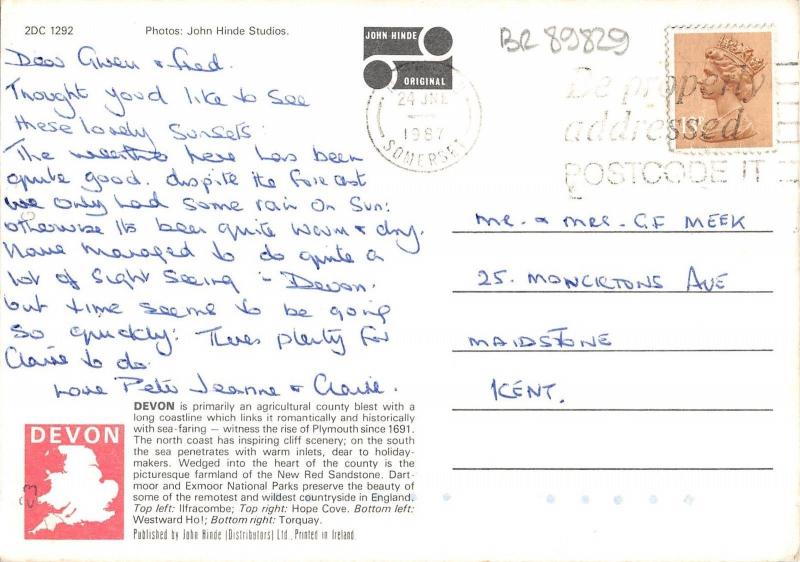 2DC 1292
Photos: John Hinde Studios.
Dear Gwen & Fred.
Thought you'd like to see
these lovely sunsets.
The weather here has been
quite good. despite the forecast
we only had some rain on Sun:
otherwise its been quite warm & dry.
have managed to do quite a
lot of sight seeing - Devon.
but time seems to be going
so quickly: Theres plenty for
Claire to do.
Love Pete Jeanne & Claire.
JOHN HINDE
ORIGINAL
24 JNE
1987
SOMERSET
BR 89829
Be properly
addressed
POSTCODE IT
Mr. & Mrs. G.F MEEK
25. MONCKTONS AVE
MAIDSTONE
KENT.
DEVON
DEVON is primarily an agricultural county blest with a
long coastline which links it romantically and historically
with sea-faring — witness the rise of Plymouth since 1691.
The north coast has inspiring cliff scenery; on the south
the sea penetrates with warm inlets, dear to holiday-
makers. Wedged into the heart of the county is the
picturesque farmland of the New Red Sandstone. Dart-
moor and Exmoor National Parks preserve the beauty of
some of the remotest and wildest countryside in England.
Top left: Ilfracombe; Top right: Hope Cove. Bottom left:
Westward Ho!; Bottom right: Torquay.
Published by John Hinde (Distributors) Ltd., Printed in Ireland.